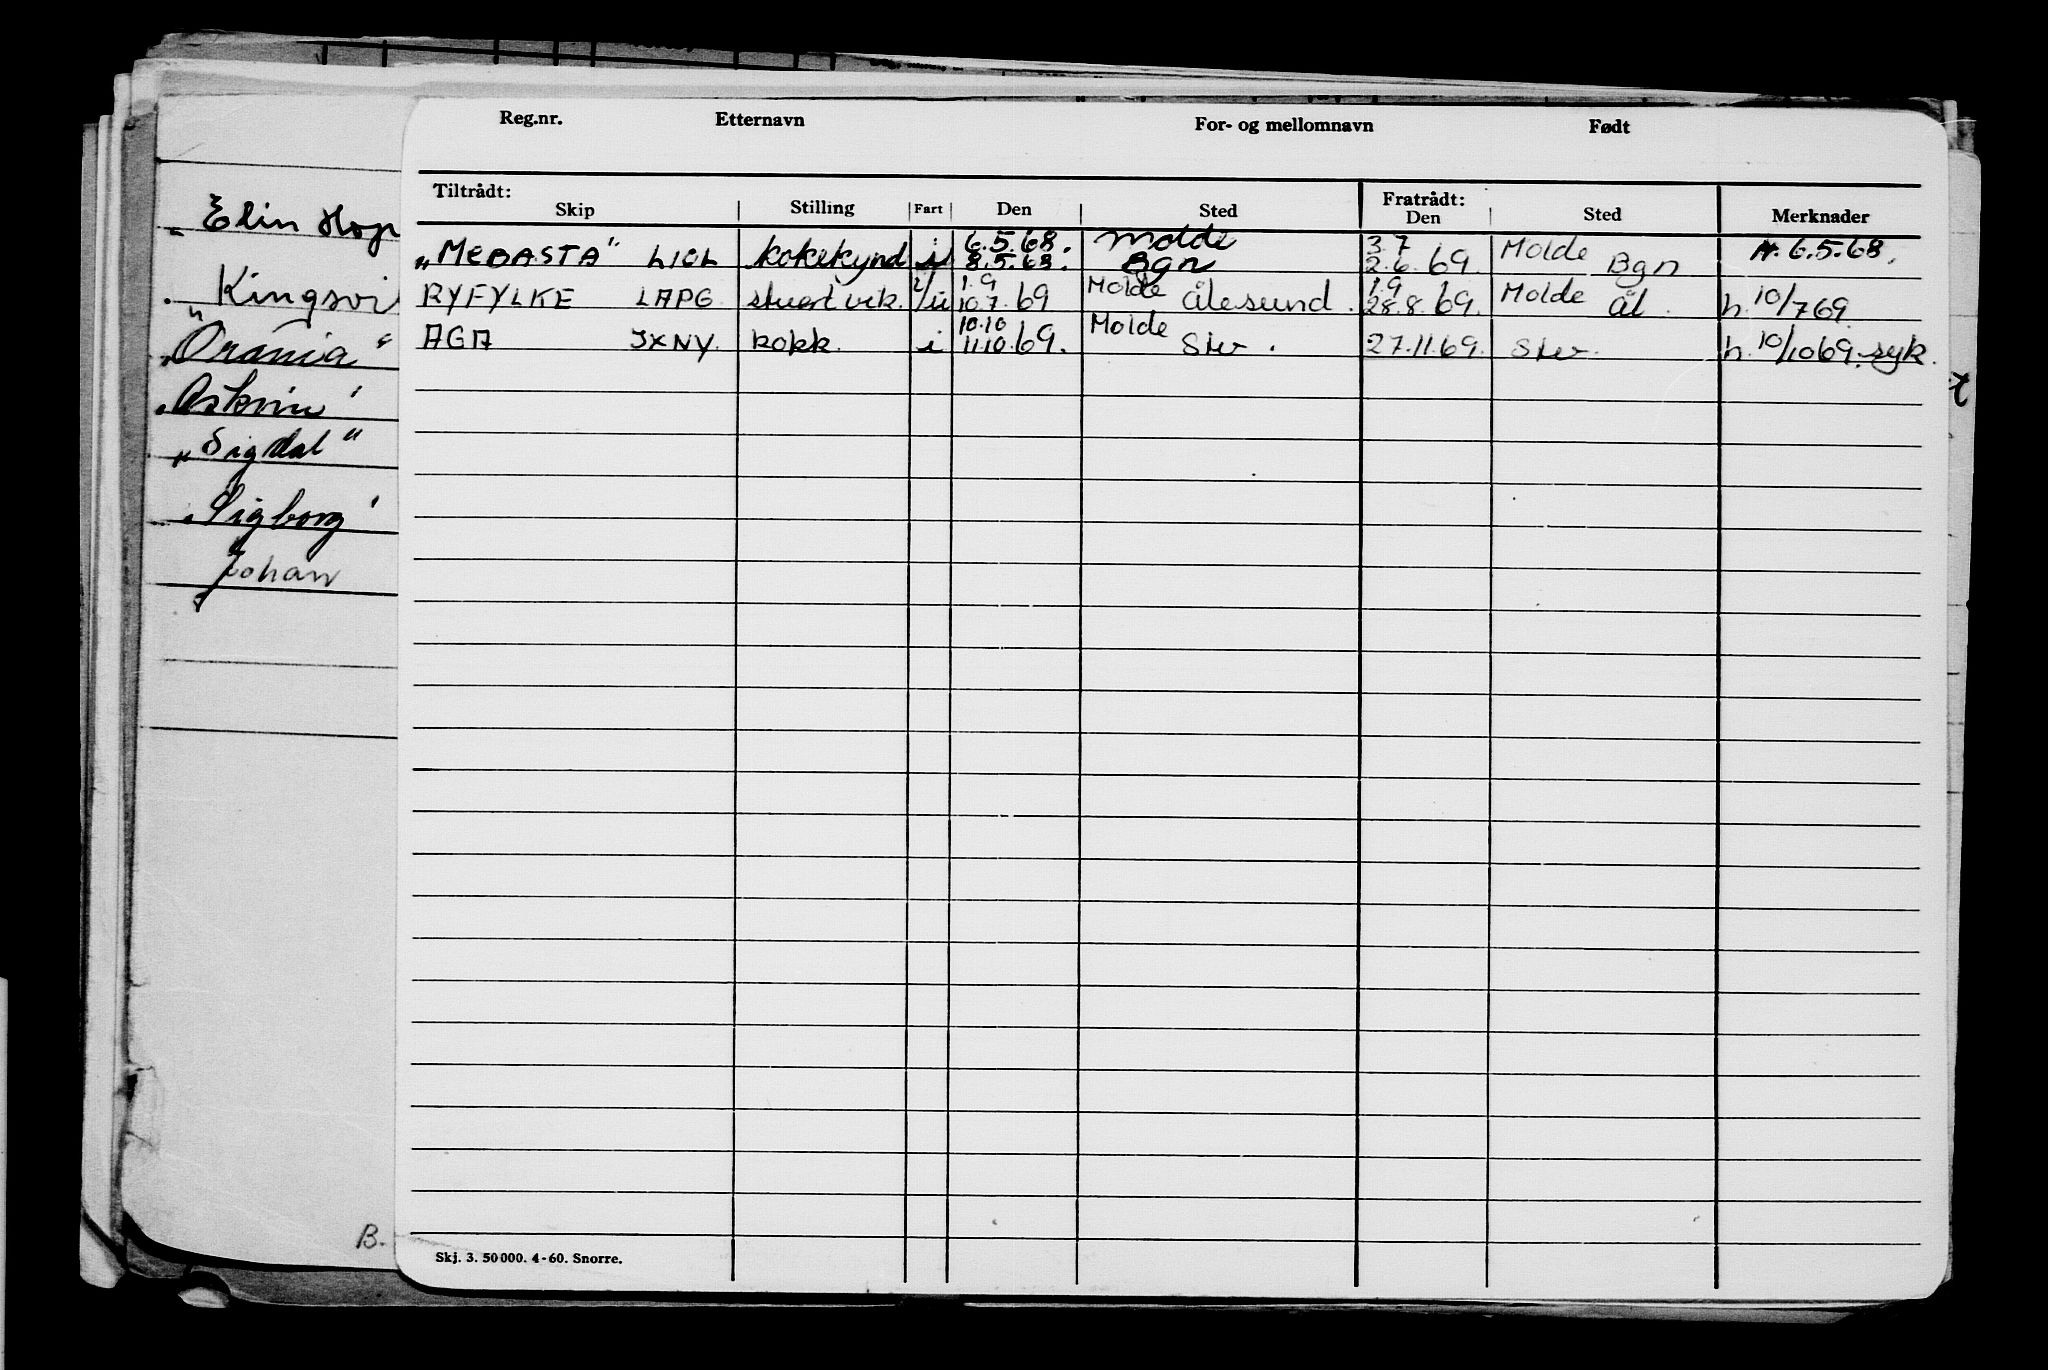 Reg.nr. Etternavn For- og mellomnavn Født
Tiltrådt: Fratrådt:
Skip Stilling Fart Den Sted Den Sted Merknader
6.5.68. Molde 3.7 Molde
„MEDASTA" LICL kokekynd i 8.5.68. Bgn 2.6.69. Bgn 6.5.68.
1.9 Molde 1.9 Molde
RYFYLKE LAPG stuert vik. 10.7.69 Ålesund. 28.8.69. Ål. h. 10/769.
10.10 Molde
AGA JXNY. kokk. i 11.10.69. Stv. 27.11.69. Stv. h. 10/1069. syk.
Elin Hop
Kingsvi
„Orania"
Askvin
„Sigdal"
Sigborg
Johan
B.
Skj. 3. 50 000. 4-60. Snorre.